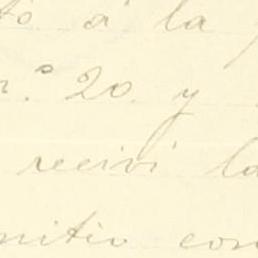 tó á la
n.º 20. y
recivi la
mitio con